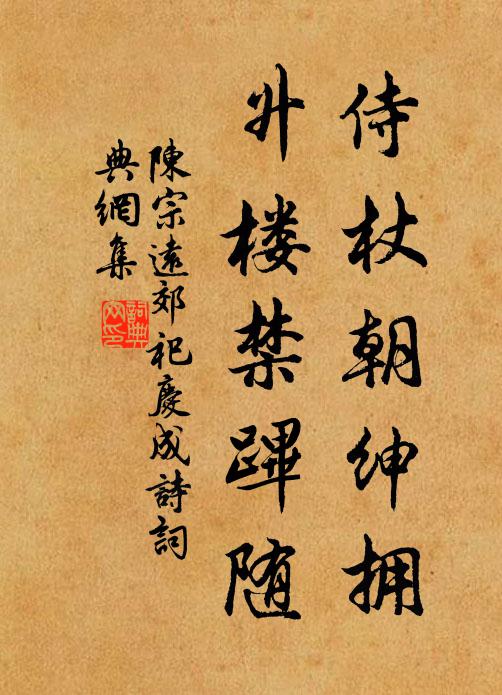 侍杖朝绅拥
升楼禁跸随
陳宗遠郊祀慶成詩詞
典網集
詞典
网印